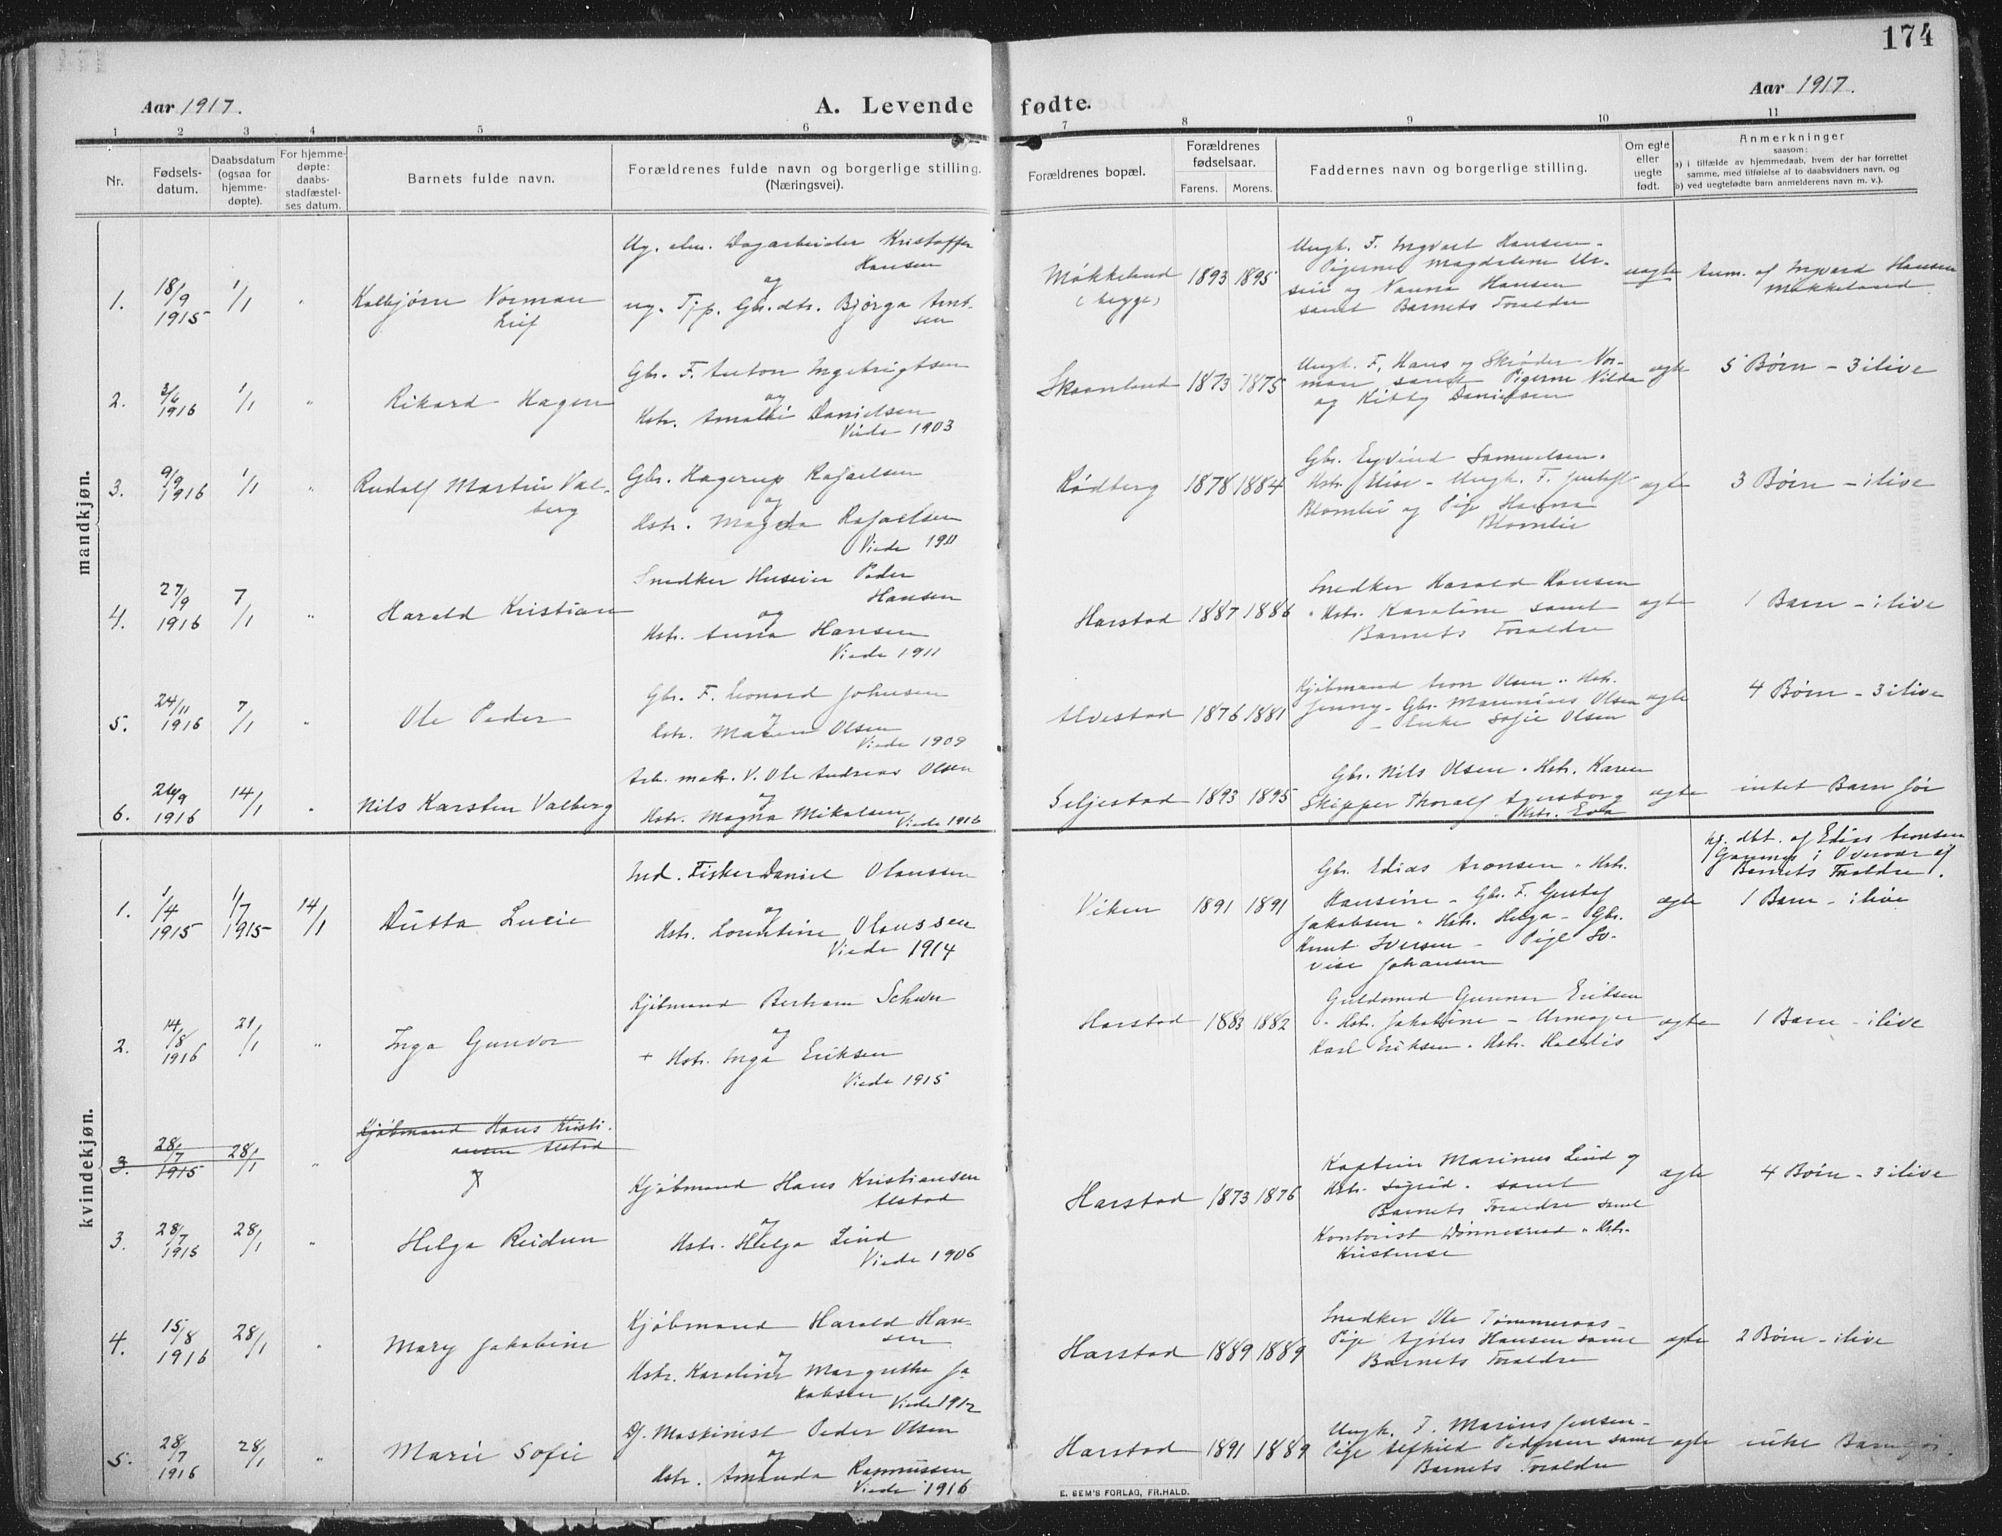 174
Aar 1917.
A. Levende fødte.
Aar 1917.
1 2 3 4 5 6 7 8 9 10 11
Nr.
Fødsels-
datum.
Daabsdatum
(ogsaa for
hjemme-
døpte).
For hjemme-
døpte:
daabs-
stadfæstel-
ses datum.
Barnets fulde navn.
Forældrenes fulde navn og borgerlige stilling.
(Næringsvei).
Forældrenes bopæl.
Forældrenes
fødselsaar.
Farens. Morens.
Faddernes navn og borgerlige stilling.
Om egte
eller
uegte
født.
Anmerkninger
saasom:
a) i tilfælde av hjemmedaab, hvem der har forrettet
samme, med tilføielse af to daabsvidners navn, og
b) ved uegtefødte barn anmelderens navn m. v.).
mandkjøn.
1.
18/9
1915
1/1
"
Kolbjørn Norman
Leif
Ug. elm. Dagarbeider Kristoffer
Hansen
og
ug. Tjp. Gbr.dtr. Bjørga Arnt-
sen
Møkkeland
(begge)
1893 1895
Ungk. F. Ingvart Hansen -
Pigerne Magdalene
og Nanna Hansen
samt Barnets Foraldre
uagte
Anm. af Ingvard Hansen
Møkkeland
2.
3/6
1916
1/1
"
Rikard Hagen
Gbr. F. Anton Ingebrigtsen
og
Hstr. Amalie Danielsen
Viede 1903
Skaanland
1873 1875
Ungk. F. Hans og Skjøder Nor-
man samt Pigerne Vilda
og Kitty Danielsen
agte
5 Børn - 3 ilive
3.
9/9
1916
1/1
"
Rudolf Martin Val-
berg
Gbr. Hagerup Rafaelsen
og
Hstr. Magda Rafaelsen
Viede 1911
Rødberg
1878 1884
Gbr. Eyvind Samuelsen.
Hstr. Elise - Ungk. F. Gustaf
Blomlie og Pige Hanna
Blomlie
agte
3 Børn - ilive
4.
27/9
1916
7/1
"
Harald Kristian
Snedker Huseier Peder
Hansen
og
Hstr. Anna Hansen
Viede 1911
Harstad
1887 1886
Snedker Harald Hansen
" Hstr. Karoline samt
Barnets Foraldre
agte
1 Barn - ilive
5.
24/11
1916
7/1
"
Ole Peder
Gbr. F. Leonard Johnsen
og
Hstr. Maren Olsen
Viede 1909
Alvestad
1876 1881
Kjøbmand Aron Olsen " Hstr.
Jenny - Gbr. Marenius Olsen
- Enke Sofie Olsen
agte
4 Børn - 3 ilive
6.
26/9
1916
14/1
"
Nils Karsten Valberg
Arb. mek. V. Ole Andreas Olsen
og
Hstr. Magna Mikalsen
Viede 1916
Seljestad
1893 1895
Gbr. Nils Olsen " Hstr. Karen
Skipper Thoralf Agersborg
" Hstr. Eva
agte
intet Barn før
kvindekjøn.
1.
1/4
1915
1/7
1915
14/1
Dutta Lucie
Ind. Fisker Daniel Olaussen
og
Hstr. Lorentine Olaussen
Viede 1914
Viken
1891 1891
Gbr. Edias Aronsen " Hstr.
Hansine - Gbr. F. Gustaf
Jakobsen " Hstr. Helga - Gbr.
Knut Iversen - Pige Lo-
vise Johansen
agte
hj. dbt. af Edias Aronsen
Barnets Foraldre).
1 Barn - ilive
2.
14/8
1916
21/1
"
Inga Gunvor
Kjøbmand Bertram Schwer
og
+ Hstr. Inga Eriksen
Viede 1915
Harstad
1883 1882
Guldsmed Gunnar Eriksen
" Hstr. Jakobine - Urmager
Karl Eriksen " Hstr. Halldis
agte
1 Barn - ilive
3.
28/7
1915
28/1
"
Kjøbmand Hans Kristi-
ansen Alstad
3.
28/7
1915
28/1
"
Helga Reidun
Kjøbmand Hans Kristiansen
Alstad
og
Hstr. Helga Lind
Viede 1906
Harstad
1873 1876
Kaptein Marinus Lind og
Hstr. Sigrid. samt
Barnets Foraldre samt
Kontorist Dønnesund " Hstr.
Kristense
agte
4 Børn - 3 ilive
4.
15/8
1916
28/1
"
Mary Jakobine
Kjøbmand Harald Han-
sen
og
Hstr. Karoline Margrethe Ja-
kobsen
Viede 1912
Harstad
1889 1889
Snedker Ole Tømmeraas-
Pige Agnes Hansen samt
Barnets Foraldre
agte
2 Børn - ilive
5.
28/7
1916
28/1
"
Marie Sofie
Maskinist Peder Olsen
og
Hstr. Amanda Rasmussen
Viede 1916
Harstad
1891 1889
Ungk. F. Marius Jensen -
Pige Alfhild Pedersen samt
Barnets Foraldre
agte
intet Barn før.
E. SEM'S FORLAG, FR.HALD.